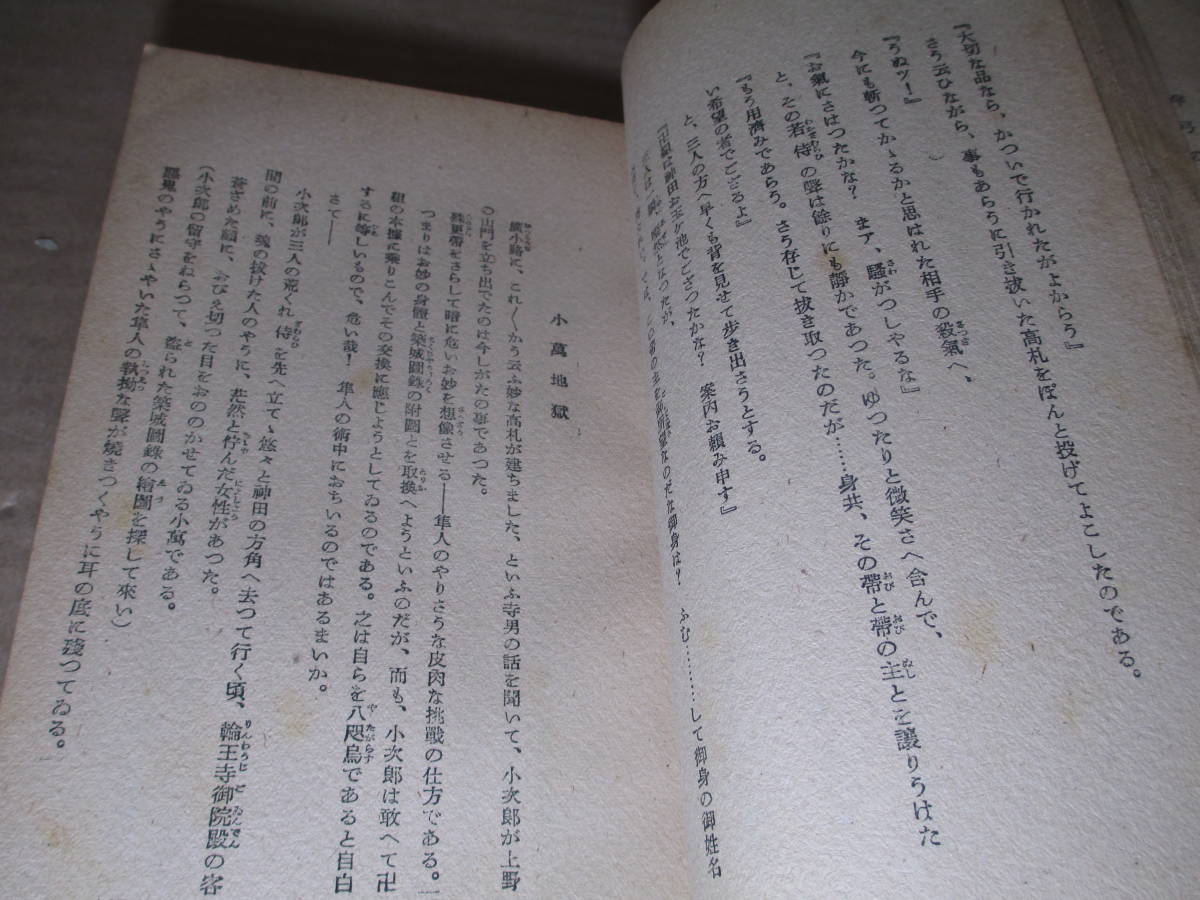 『大切な品なら、かついで行かれたがよからう』
さう云ひながら、事もあらうに引き拔いた高札をぽんと投げてよこしたのである。
『うぬッ！』
今にも斬つてかゝるかと思はれた相手の殺氣へ、
『お氣にさはつたかな？　まア、騷がつしやるな』
と、その若侍の聲は餘りにも靜かであつた。ゆつたりと微笑さへ含んで、
『もう用濟みであらう。さう存じて拔き取つたのだが……身共、その帶と帶の主とを讓りうけた
い希望の者でござるよ』
と、三人の方へ早くも背を見せて歩き出さうとする。
は神田お玉ケ池でござつたかな？　案内お頼み申す』
とはつたが、
な御身は？　ふむ………して御身の御姓名
小萬地獄
廣小路に、これ〳〵かう云ふ妙な高札が建ちました、といふ寺男の話を聞いて、小次郎が上野
の山門を立ち出でたのは今しがたの事であつた。
帶をさらして暗に危いお妙を想像させる――隼人のやりさうな皮肉な挑戰の仕方である。
つまりはお妙の身體と築城圖錄の附圖とを取換へようといふのだが、而も、小次郎は敢へて卍
組の本據に乘りこんでその交換に應じようとしてゐるのである。之は自らを八咫烏であると自白
するに等しいもので、危い哉！　隼人の術中におちいるのではあるまいか。
さて――
小次郎が三人の荒くれ侍を先へ立てゝ悠々と神田の方角へ去つて行く頃、輪王寺御院殿の客
間の前に、魂の拔けた人のやうに、茫然と佇んだ女性があつた。
蒼ざめた顏に、おびえ切つた目をおのゝかせてゐる小萬である。
（小次郎の留守をねらつて、盜られた築城圖錄の繪圖を探して來い）
惡鬼のやうにさゝやいた隼人の執拗な聲が燒きつくやうに耳の底に殘つてゐる。